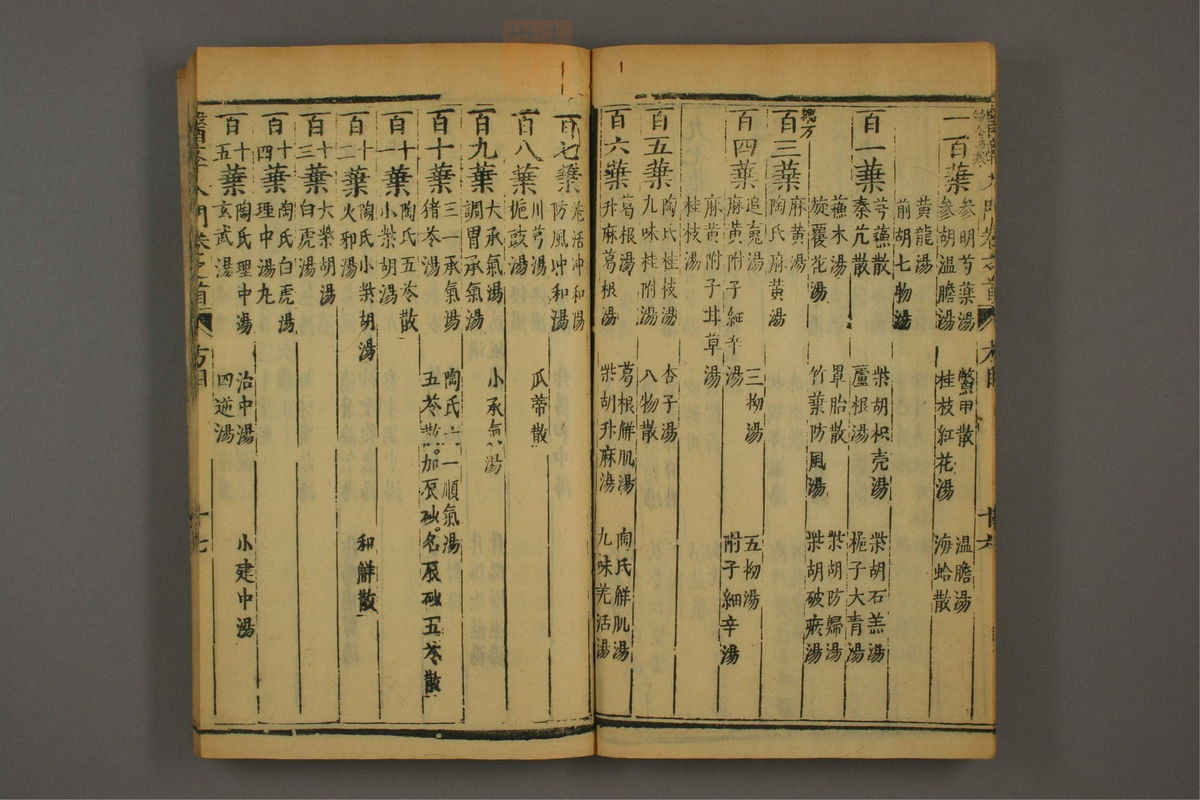 一百葉
參明芍藥湯 鱉甲散 溫膽湯
參胡溫膽湯 桂枝紅花湯 海蛤散
黃龍湯
前胡七物湯
百一葉
芎蘇散 柴胡枳壳湯 柴胡石羔湯
秦艽散 蘆根湯 梔子大青湯
蘇木湯 單胎散 柴胡防歸湯
旋覆花湯 竹葉防風湯 柴胡破瘀湯
百三葉
麻黃湯
陶氏麻黃湯
百四葉
追䰟湯 三拗湯 五拗湯
麻黃附子細辛湯 附子細辛湯
麻黃附子甘草湯
桂枝湯
百五葉
陶氏桂枝湯 杏子湯
九味桂附湯 八物散
百六葉
葛根湯 葛根解肌湯 陶氏解肌湯
升麻葛根湯 柴胡升麻湯 九味羌活湯
百七葉
羌活沖和湯
防風沖和湯 瓜蒂散
百八葉
川芎湯
梔豉湯
百九葉
大承氣湯 小承氣湯
調胃承氣湯
百十葉
三一承氣湯 陶氏六一順氣湯
猪苓湯 五苓散。加辰砂。名辰砂五苓散
百十一葉
陶氏五苓散
小柴胡湯
百十二葉
陶氏小柴胡湯 和解散
火邪湯
百十三葉
大柴胡湯
白虎湯
百十四葉
陶氏白虎湯
理中湯九
百十五葉
陶氏理中湯 治中湯 小建中湯
玄武湯 四逆湯
醫學入門卷之首 方目 十七